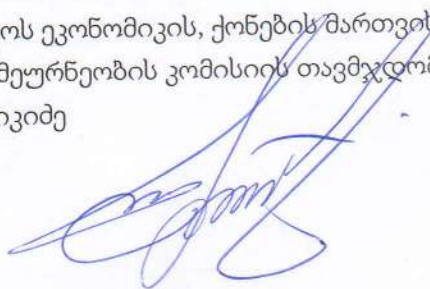 ოს ეკონომიკის, ქონების მართვის
მეურნეობის კომისიის თავმჯდომ
იკიძე